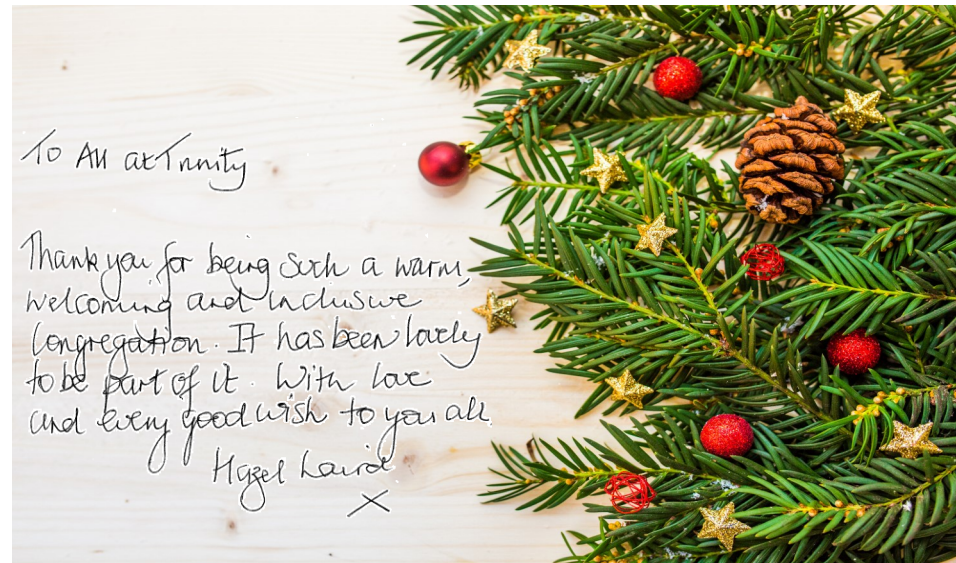 To All at Trinity
Thank you for being such a warm,
welcoming and inclusive
congregation. It has been lovely
to be part of it. With love
and every good wish to you all.
Hazel Laird
X